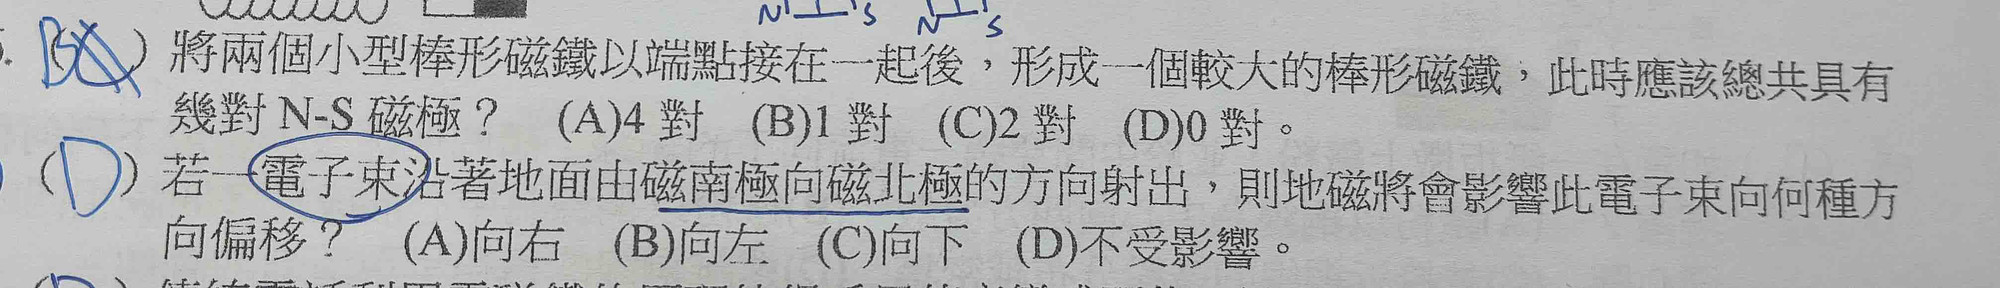 N S N S
將兩個小型棒形磁鐵以端點接在一起後，形成一個較大的棒形磁鐵，此時應該總共具有
幾對 N-S 磁極？ (A)4 對 (B)1 對 (C)2 對 (D)0 對。
(D) 若一電子束沿著地面由磁南極向磁北極的方向射出，則地磁將會影響此電子束向何種方
向偏移？ (A)向右 (B)向左 (C)向下 (D)不受影響。